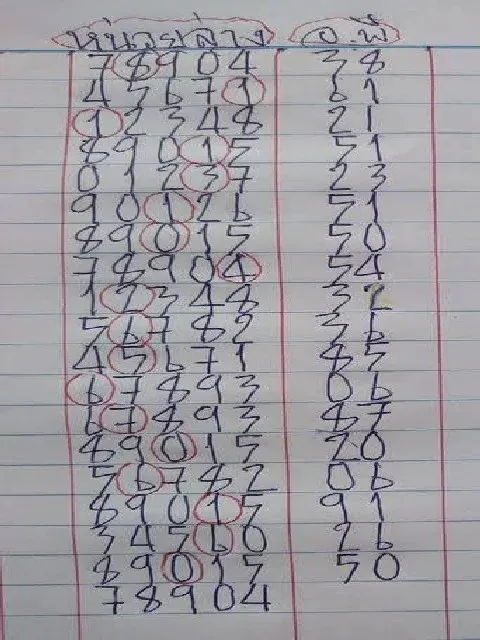 หน่วยล่าง อ.พี
78904 38
45671 61
12348 21
89015 51
01237 23
90126 51
89015 50
78904 54
12348 32
56782 36
45671 85
67893 06
67893 87
89015 20
56782 06
89015 91
34560 26
89015 50
78904